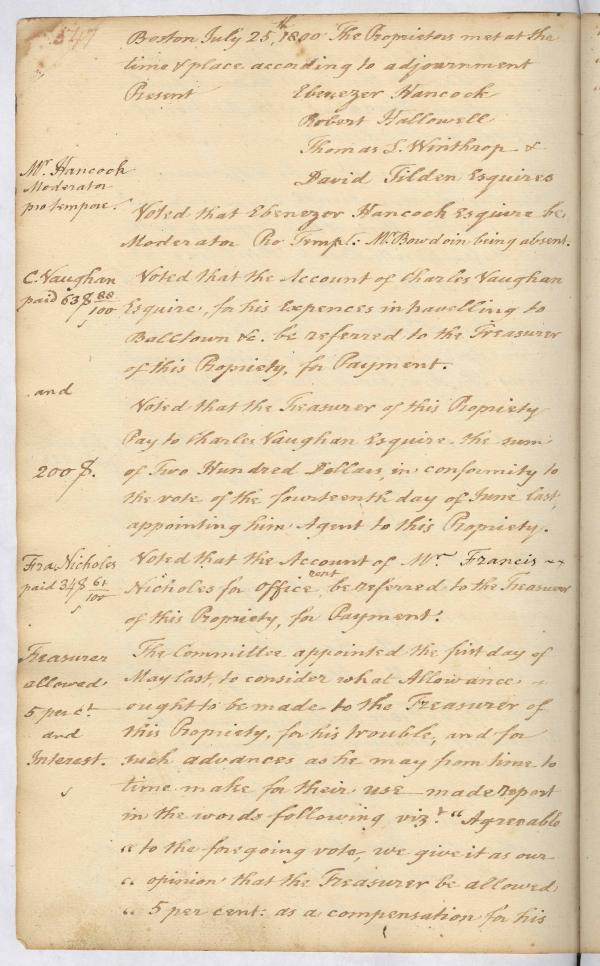 347
Boston July 25th, 1800 The Proprietors met at the
time & place according to adjournment
Present Ebenezer Hancock
Robert Hallowell
Thomas L. Winthrop &
David Tilden Esquires
Mr. Hancock
Moderator
pro tempore.
Voted that Ebenezer Hancock Esquire be
Moderator Pro Temp.: Mr. Bowdoin being absent.
C. Vaughan
paid 63$ 88/100
Voted that the Account of Charles Vaughan
Esquire, for his Expences in travelling to
Balltown &c. be referred to the Treasurer
of this Propriety, for Payment.
and
200$.
Voted that the Treasurer of this Propriety
Pay to Charles Vaughan Esquire the sum
of Two Hundred Dollars, in conformity to
the vote of the fourteenth day of June last,
appointing him Agent to this Propriety.
Fra. Nicholes
paid 34$ 61/100
Voted that the Account of Mr. Francis
Nicholes for Office rent, be referred to the Treasurer
of this Propriety, for Payment.
Treasurer
allowed
5 per ct.
and
Interest.
The Committee appointed the first day of
May last to consider what Allowance
ought to be made to the Treasurer of
this Propriety, for his trouble, and for
such advances as he may from time to
time make for their use made report
in the words following vizt. "Agreeable
" to the foregoing vote, we give it as our
" opinion that the Treasurer be allowed
" 5 per cent: as a compensation for his